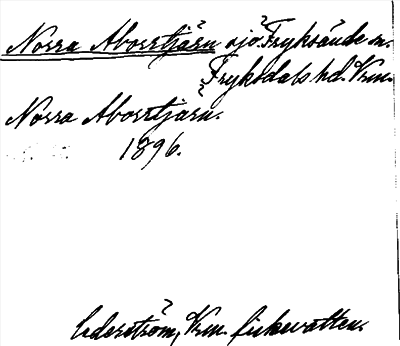 Norra Aborrtjärn sjö. Fryksände sn.
Fryksdals hd. Vrm.
Norra Aborrtjärn.
1896.
Cederström, Vrm. fiskevatten.